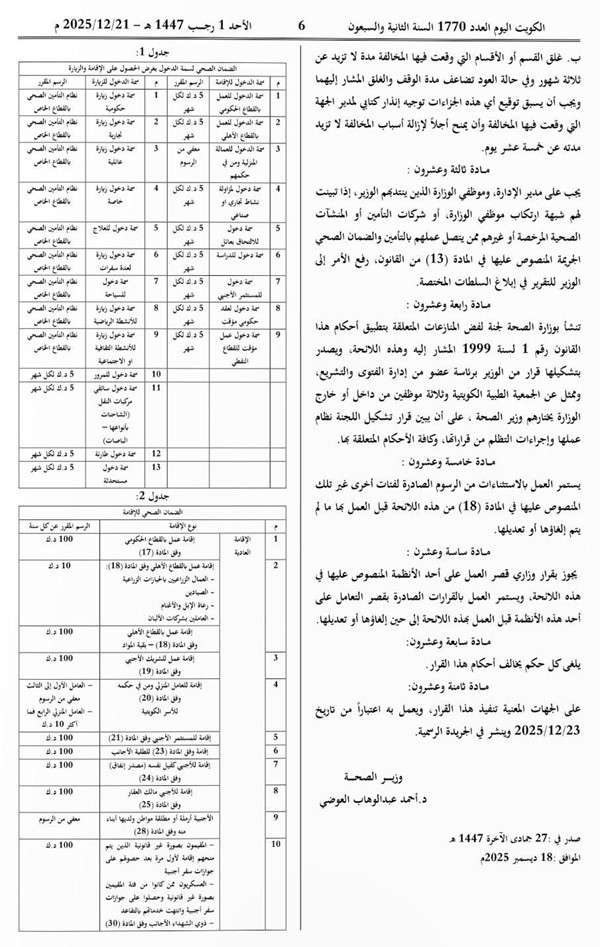 الكويت اليوم العدد 1770 السنة الثانية والسبعون
6
الأحد 1 رجب 1447 هـ – 2025/12/21 م
ب. غلق القسم أو الأقسام التي وقعت فيها المخالفة مدة لا تزيد عن
ثلاثة شهور وفي حالة العود تضاعف مدة الوقف والغلق المشار إليهما
ويجب أن يسبق توقيع أي هذه الجزاءات توجيه إنذار كتابي لمدير الجهة
التي وقعت فيها المخالفة وأن يمنح أجلاً لإزالة أسباب المخالفة لا تزيد
مدته عن خمسة عشر يوم.
مـادة ثالثة وعشرون :
يجب على مدير الإدارة، وموظفي الوزارة الذين ينتدبهم الوزير، إذا تبينت
لهم شبهة ارتكاب موظفي الوزارة، أو شركات التأمين أو المنشآت
الصحية المرخصة أو غيرهم ممن يتصل عملهم بالتأمين والضمان الصحي
الجريمة المنصوص عليها في المادة (13) من القانون، رفع الأمر إلى
الوزير للتقرير في إبلاغ السلطات المختصة.
مـادة رابعة وعشرون :
تنشأ بوزارة الصحة لجنة لفض المنازعات المتعلقة بتطبيق أحكام هذا
القانون رقم 1 لسنة 1999 المشار إليه وهذه اللائحة، ويصدر
بتشكيلها قرار من الوزير برئاسة عضو من إدارة الفتوى والتشريع،
وممثل عن الجمعية الطبية الكويتية وثلاثة موظفين من داخل أو خارج
الوزارة يختارهم وزير الصحة ، على أن يبين قرار تشكيل اللجنة نظام
عملها وإجراءات التظلم من قراراتها، وكافة الأحكام المتعلقة بها.
مـادة خامسة وعشرون :
يستمر العمل بالاستثناءات من الرسوم الصادرة لفئات أخرى غير تلك
المنصوص عليها في المادة (18) من هذه اللائحة قبل العمل بها ما لم
يتم إلغاؤها أو تعديلها.
مـادة ساسة وعشرن :
يجوز بقرار وزاري قصر العمل على أحد الأنظمة المنصوص عليها في
هذه اللائحة، ويستمر العمل بالقرارات الصادرة بقصر التعامل على
أحد هذه الأنظمة قبل العمل بهذه اللائحة إلى حين إلغاؤها أو تعديلها.
مـادة سابعة وعشرون:
يلغى كل حكم يخالف أحكام هذا القرار.
مـادة ثامنة وعشرون:
على الجهات المعنية تنفيذ هذا القرار، ويعمل به اعتباراً من تاريخ
2025/12/23 وينشر في الجريدة الرسمية.
وزيـر الصحـة
د.أحمد عبدالوهاب العوضي
صدر في : 27 جمادى الآخرة 1447 هـ
الموافق : 18 ديسمبر 2025م
جدول 1:
الضمان الصحي لسمة الدخول بغرض الحصول على الإقامة والزيارة
م سمة الدخول للإقامة الرسم المقرر م سمة الدخول للزيارة الرسم المقرر
1 سمة دخول للعمل بالقطاع الحكومي 5 د.ك لكل شهر 1 سمة دخول زيارة حكومية نظام التأمين الصحي بالقطاع الخاص
2 سمة دخول للعمل بالقطاع الأهلي 5 د.ك لكل شهر 2 سمة دخول زيارة تجارية نظام التأمين الصحي بالقطاع الخاص
3 سمة دخول للعمالة المنزلية ومن في حكمهم معفي من الرسوم 3 سمة دخول زيارة عائلية نظام التأمين الصحي بالقطاع الخاص
4 سمة دخول لمزاولة نشاط تجاري او صناعي 5 د.ك لكل شهر 4 سمة دخول زيارة خاصة نظام التأمين الصحي بالقطاع الخاص
5 سمة دخول للالتحاق بعائل 5 د.ك لكل شهر 5 سمة دخول للعلاج نظام التأمين الصحي بالقطاع الخاص
6 سمة دخول للدراسة 5 د.ك لكل شهر 6 سمة دخول زيارة لعدة سفرات نظام التأمين الصحي بالقطاع الخاص
7 سمة دخول للمستثمر الأجنبي 5 د.ك لكل شهر 7 سمة دخول للسياحة نظام التأمين الصحي بالقطاع الخاص
8 سمة دخول لعقد حكومي مؤقت 5 د.ك لكل شهر 8 سمة دخول للأنشطة الرياضية نظام التأمين الصحي بالقطاع الخاص
9 سمة دخول عمل مؤقت للقطاع النفطي 5 د.ك لكل شهر 9 سمة دخول للأنشطة الثقافية او الاجتماعية نظام التأمين الصحي بالقطاع الخاص
10 سمة دخول للمرور 5 د.ك لكل شهر
11 سمة دخول سائقي مركبات النقل (الشاحنات بأنواعها – الباصات) 5 د.ك لكل شهر
12 سمة دخول طارئة 5 د.ك لكل شهر
13 سمة دخول مستحدثة 5 د.ك لكل شهر
جدول 2:
الضمان الصحي للإقامة
م نوع الإقامة الرسم المقرر عن كل سنة
1 الإقامة العادية إقامة عمل بالقطاع الحكومي وفق المادة (17) 100 د.ك
2 إقامة عمل بالقطاع الأهلي وفق المادة (18):
– العمال الزراعيين بالحيازات الزراعية
– الصيادين
– رعاة الإبل والأغنام
– العاملين بشركات الألبان
10 د.ك
إقامة عمل بالقطاع الأهلي وفق المادة (18) – بقية المواد 100 د.ك
3 إقامة عمل للشريك الأجنبي وفق المادة (19) 100 د.ك
4 إقامة للعامل المنزلي ومن في حكمه وفق المادة (20) للأسر الكويتية
– العامل الأول إلى الثالث معفي من الرسوم
– العامل المنزلي الرابع فما أكثر 10 د.ك
5 إقامة للمستثمر الأجنبي وفق المادة (21) 100 د.ك
6 إقامة وفق المادة (23) للطلبة الأجانب 100 د.ك
7 إقامة للأجنبي كفيل نفسه (مصدر إنفاق) وفق المادة (24) 100 د.ك
8 إقامة للأجنبي مالك العقار وفق المادة (25) 100 د.ك
9 الأجنبية أرملة أو مطلقة مواطن ولديها أبناء منه وفق المادة (28) معفي من الرسوم
10 – المقيمون بصورة غير قانونية الذين يتم منحهم إقامة لأول مرة بعد حصوهم على جوازات سفر أجنبية
– العسكريون ممن كانوا من فئة المقيمين بصورة غير قانونية وحصلوا على جوازات سفر أجنبية وانتهت خدماتهم بالتقاعد
– ذوي الشهداء الأجانب وفق المادة (30)
100 د.ك